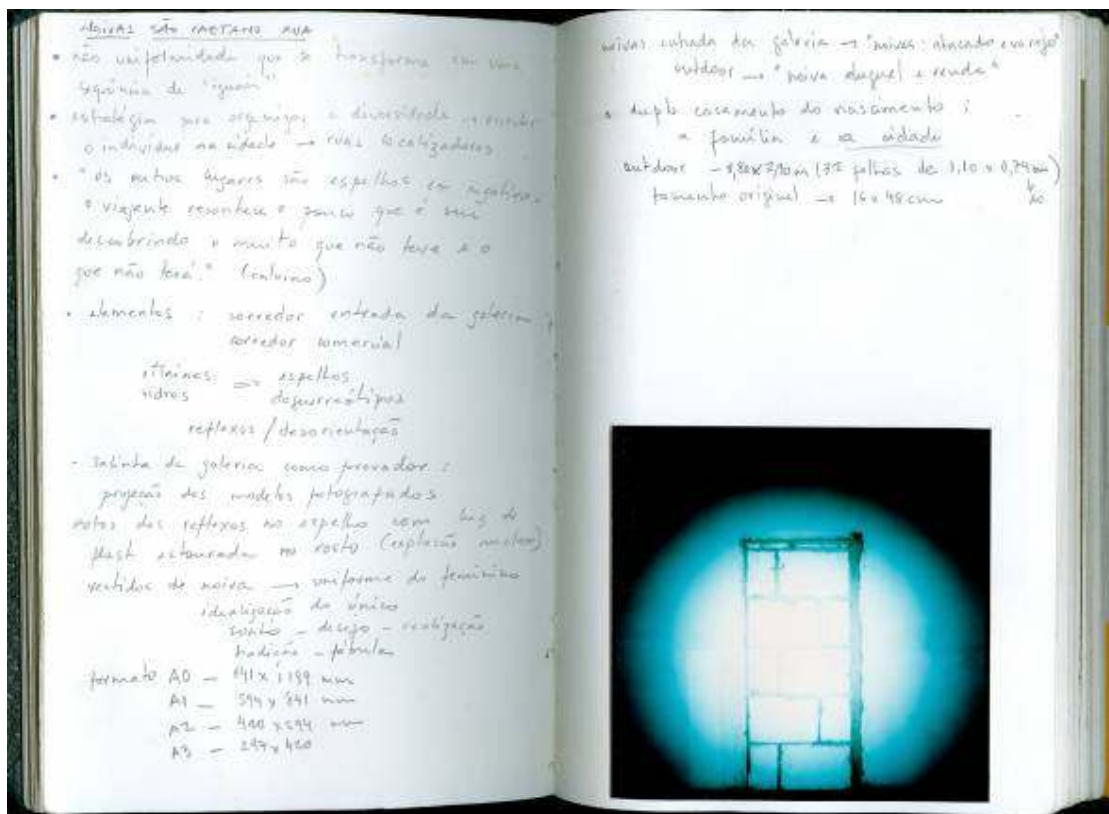 NOIVAS SÃO CAETANO RUA
• não uniformidade que se transforma em uma
sequência de "iguais"
• estratégia para organizar a diversidade
o indivíduo na cidade → ruas localizadoras
• "os outros lugares são espelhos em negativo.
o viajante reconhece o pouco que é seu
descobrindo o muito que não teve e o
que não terá." (Calvino)
• elementos : corredor entrada da galeria
corredor comercial
vitrines
vidros => espelhos
daguerreótipos
reflexos / desorientação
- salinha da galeria como provador :
projeção dos modelos fotografados
fotos dos reflexos no espelho com luz do
flash estourada no rosto (explosão nuclear)
vestidos de noiva → uniforme do feminino
idealização do único
sonho - desejo - realização
tradição - fábula
formato A0 - 841 x 1189 mm
A1 - 594 x 841 mm
A2 - 420 x 594 mm
A3 - 297 x 420
noivas entrada da galeria → "noivas: atacado e varejo"
outdoor → "noiva aluguel e venda"
• duplo casamento do nascimento :
a família e a cidade
outdoor - 8,80x2,90m (32 folhas de 1,10 x 0,74m)
tamanho original → 16 x 48 cm